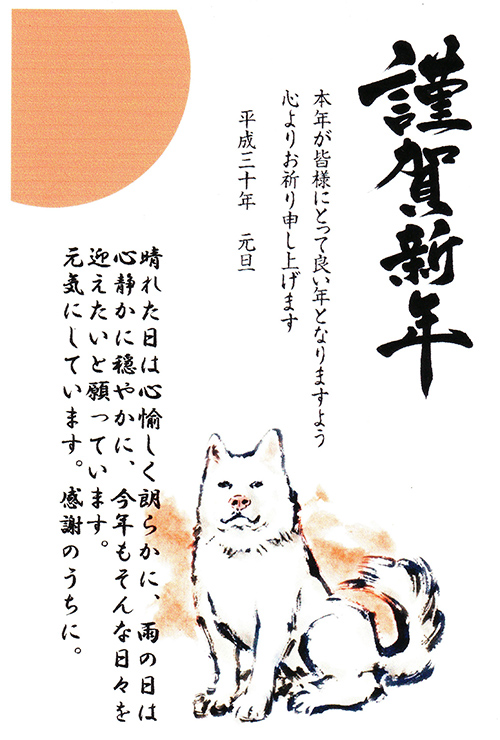 謹賀新年
本年が皆様にとって良い年となりますよう
心よりお祈り申し上げます
平成三十年 元旦
晴れた日は心愉しく朗らかに、雨の日は
心静かに穏やかに、今年もそんな日々を
迎えたいと願っています。
元気にしています。感謝のうちに。